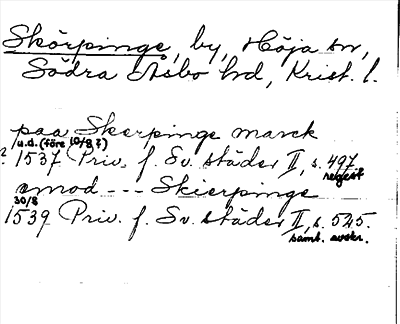 Skörpinge, by, Höja sn,
Södra Åsbo hd, Krist. l.
paa Skerpinge marck
u.d. (före 10/8 ?)
? 1537 Priv. f. Sv. städer II, s. 497
regest
emod --- Skierpinge
30/8
1539 Priv. f. Sv. städer II, s. 525.
samt. avskr.